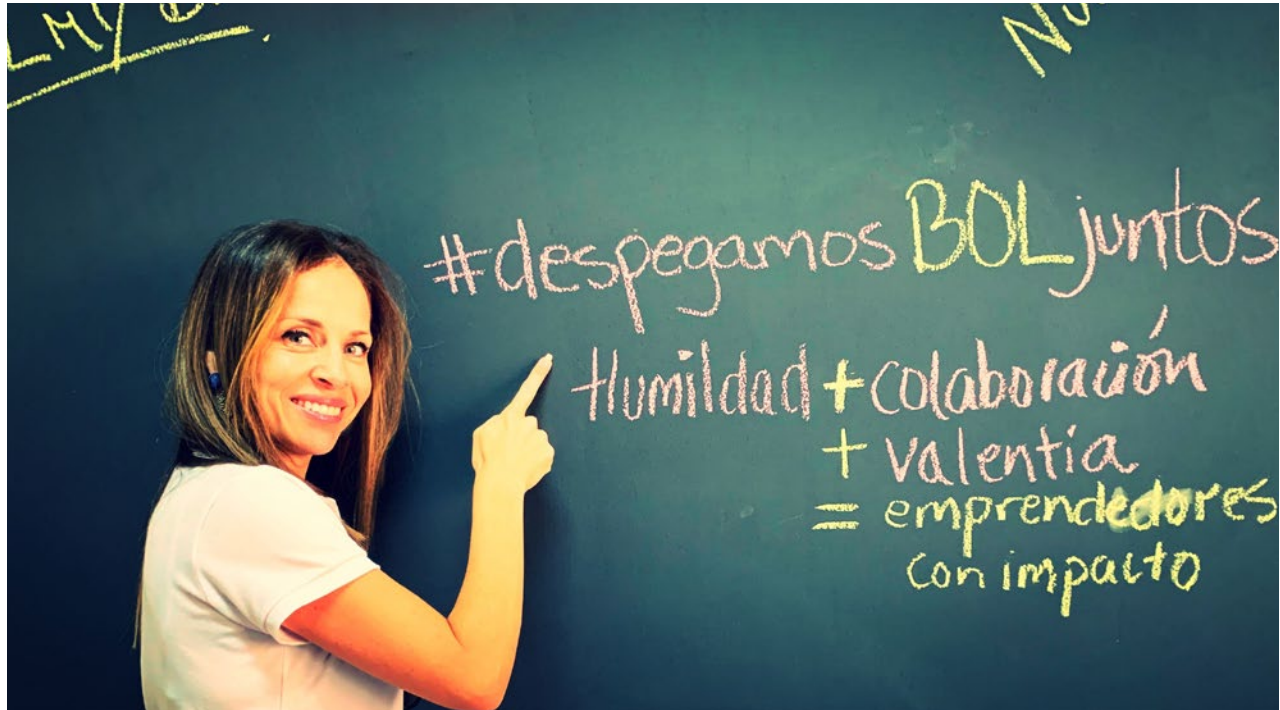 #despegamos BOL juntos
Humildad + colaboración
+ valentia
= emprendedores
con impacto